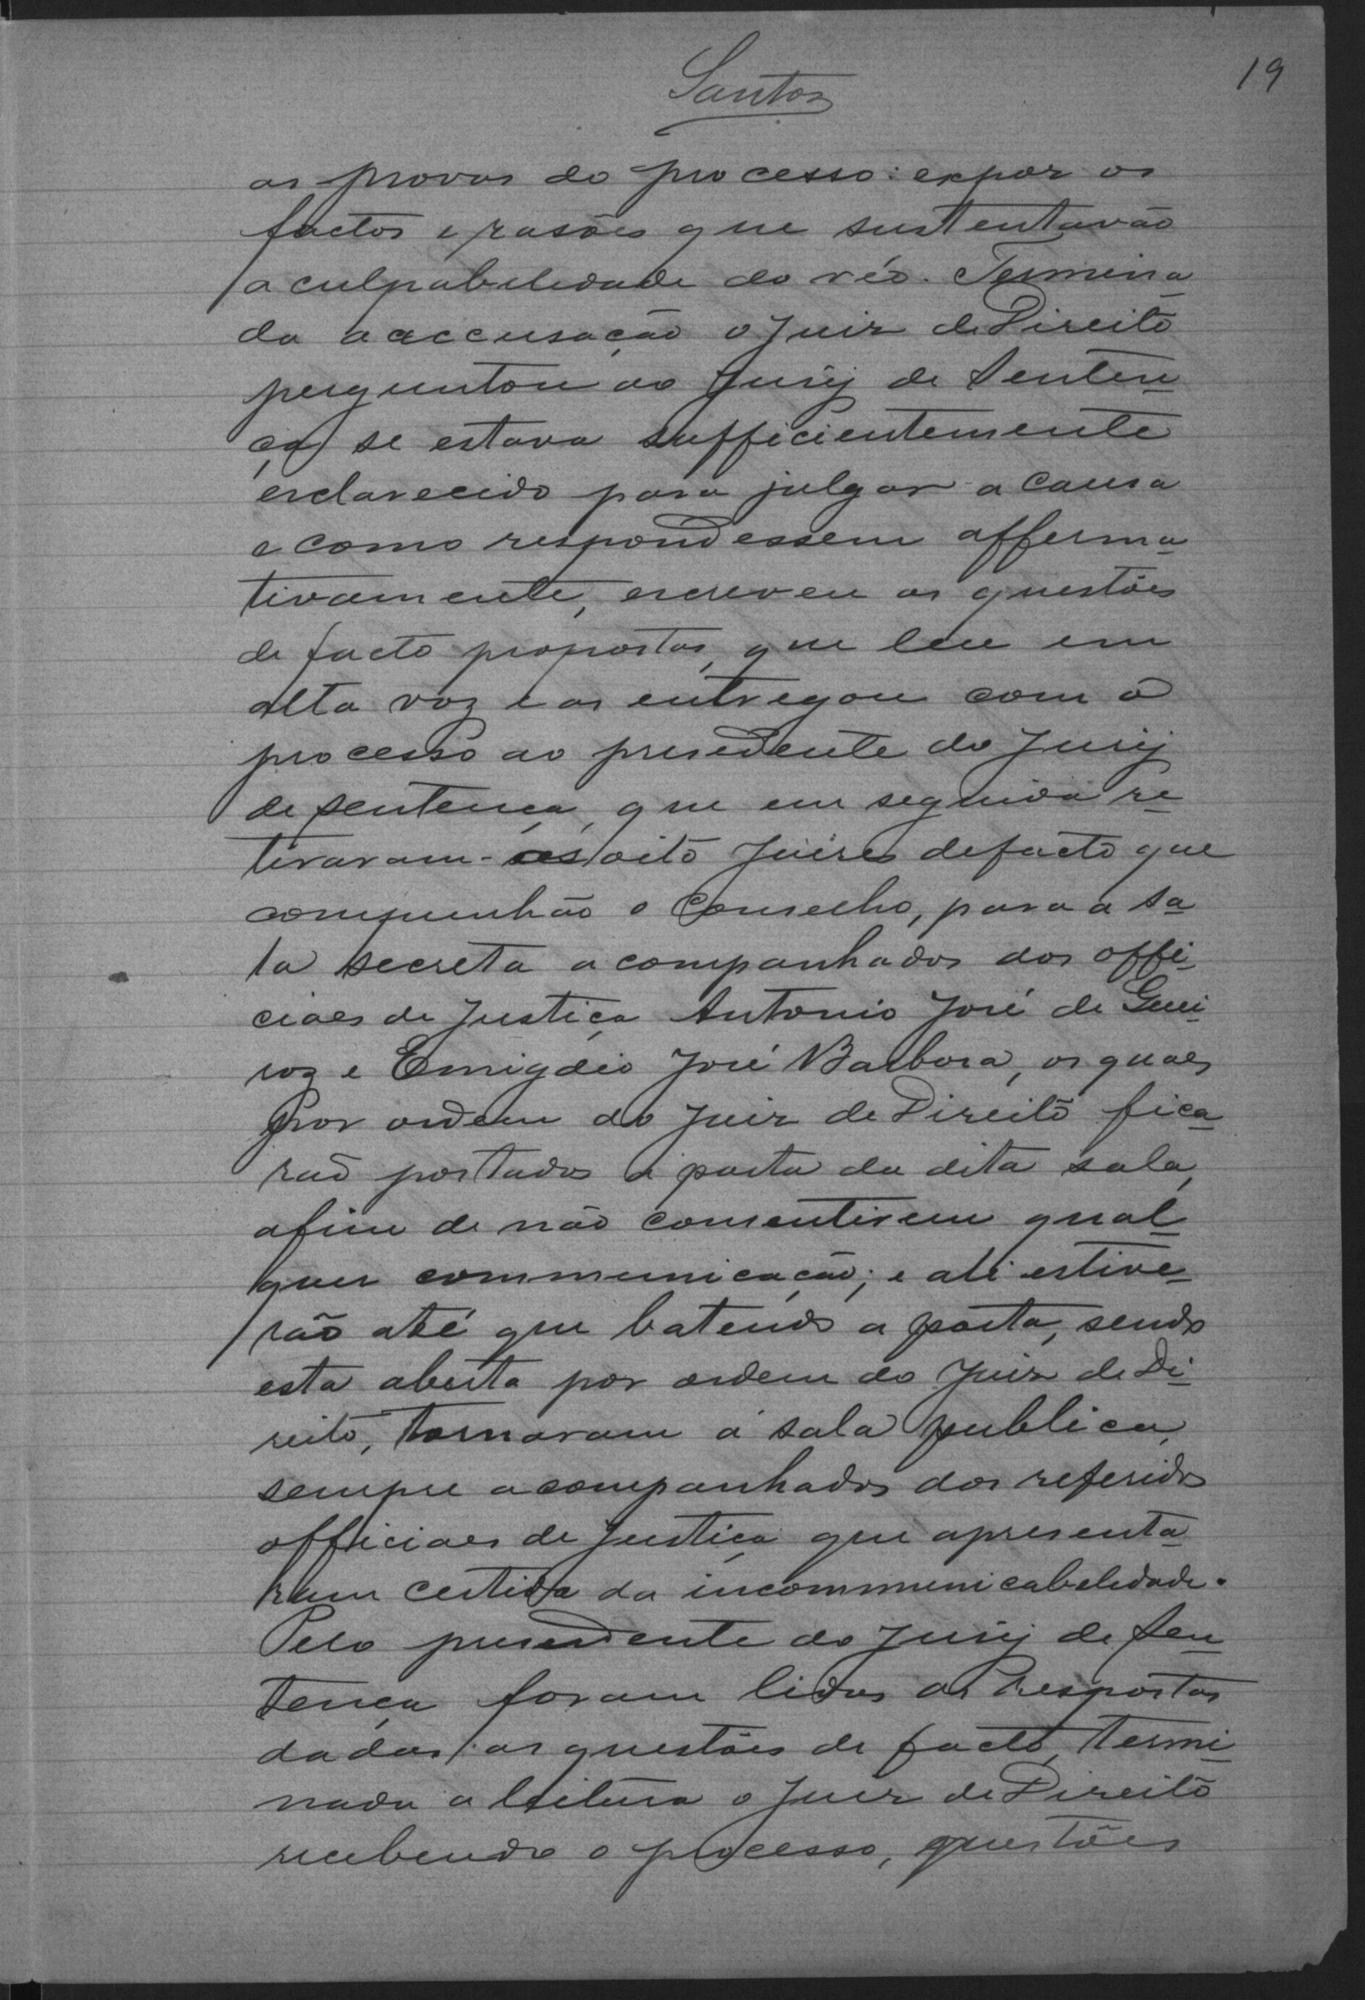 Santos
19
as provas do processo: expor os
factos e rasões que sustentavão
a culpabelidade do réo. Termina
da a accusação o Juiz de Direito
perguntou ao Jury de Senten-
ça se estava sufficientemente
esclarecido para julgar a causa
e como respondessem afferma
tivamente, escreveu as questões
de facto propostas, que leu em
alta voz e as entregou com o
processo ao presedente do Jury
de sentença, que em seguida re-
tiraram-se os oito Juizes de facto que
compunhão o Conselho, para a sa-
la secreta acompanhados dos offi-
ciaes de Justiça Antonio José de Guei-
roz e Emigdio José Barbosa, os quaes
por ordem do Juiz de Direito fica-
rão postados a porta da dita sala,
afim de não consentirem qual-
quer communicação; e ali estive-
rão até que batendo a porta, sendo
esta aberta por ordem do Juiz de Di-
reito, tornaram á sala publica,
sempre acompanhados dos referidos
officiaes de Justiça que apresenta
ram certidã da incommunicabelidade.
Pelo presedente do Jury de Sen-
tença foram lidas as respostas
dadas as questões de facto, termi-
nada a leitura o Juiz de Direito
recebendo o processo, questões